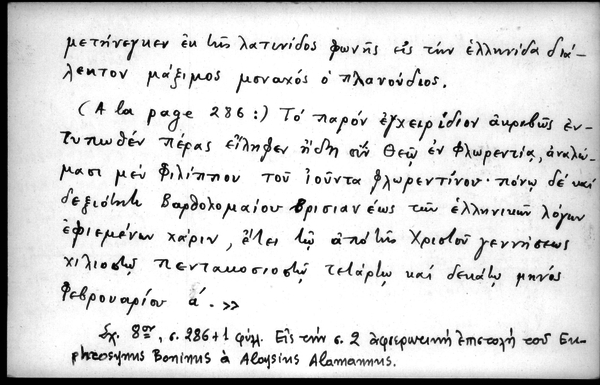 μετήνεγκεν ἐκ τῆς λατινίδος φωνῆς εἰς τὴν ἑλληνίδα διά-
λεκτον μάξιμος μοναχός ὁ πλανούδιος.
(A la page 286:) Τό παρόν ἐγχειρίδιον ἀκριβῶς ἐν-
τυπωθέν πέρας εἴληφεν ἤδη σύν Θεῷ ἐν Φλωρεντίᾳ, ἀναλώ-
μασι μέν Φιλίππου τοῦ Ἰούντα φλωρεντίνου· πόνῳ δέ καί
δεξιότητι Βαρθολομαίου Βρισιανέως τῶν ἑλληνικῶν λόγων
ἐφιεμένων χάριν, ἔτει τῷ ἀπό τῆς Χριστοῦ γεννήσεως
χιλιοστῷ πεντακοσιοστῷ τετάρτῳ καί δεκάτῳ μηνός
Φεβρουαρίου α΄. »
Σχ. 8ον, σ. 286+1 φύλ. Εἰς τήν σ. 2 ἀφιερωτική ἐπιστολή τοῦ Eu-
phrosynus Boninus à Aloysius Alamannus.